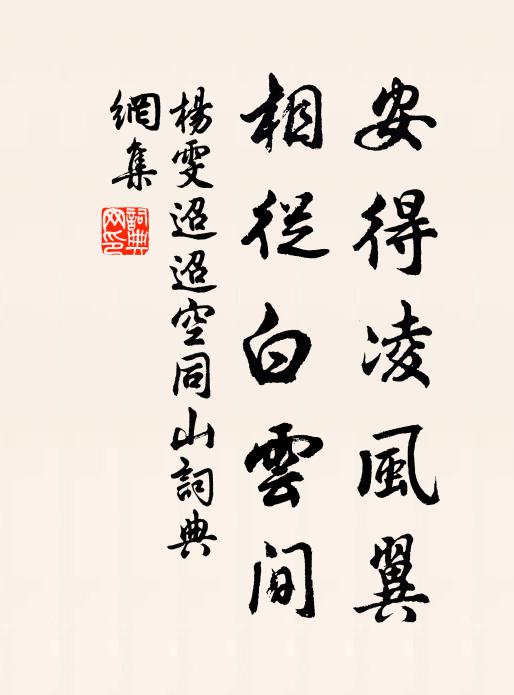 安得凌風翼
相從白雲間
楊雯迢迢空同山詞典
網集
詞典
网印